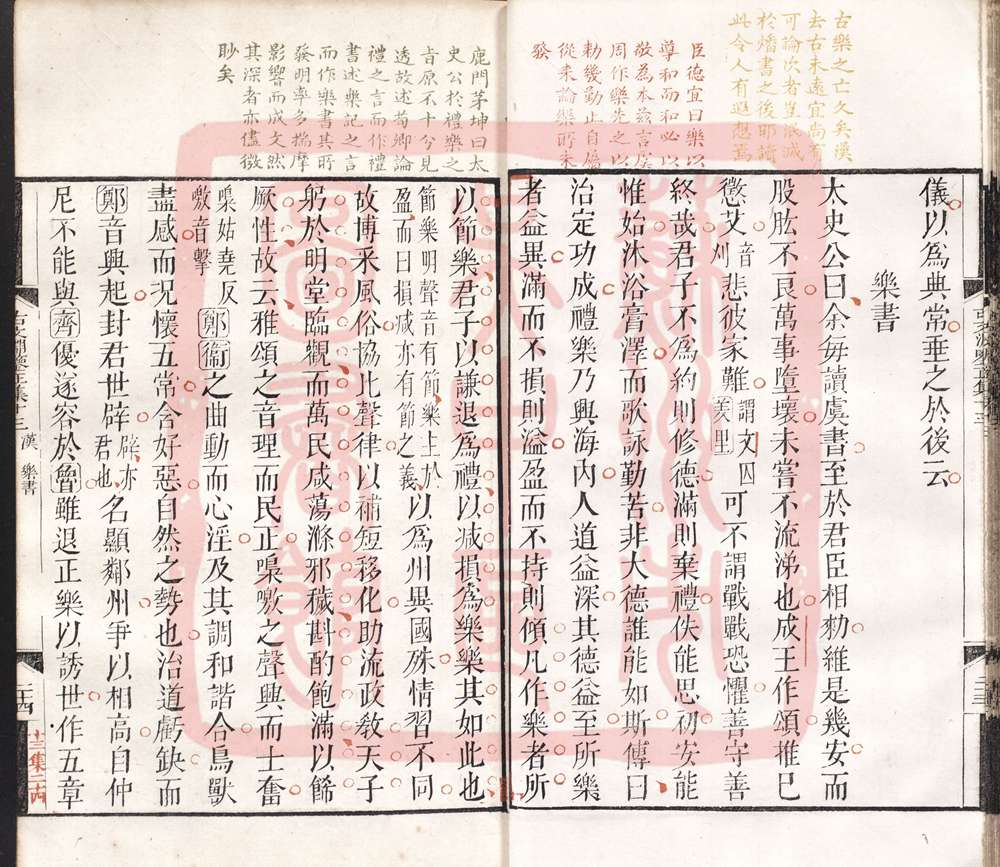 古樂之亡久矣漢
去古未遠宜尚有
可論次者豈澌滅
於燔書之後耶讀
此令人有遐想焉
臣德宜曰樂以
導和而和必以
敬為本茲言虞
周作樂先之以
勅幾勤止自為
從來論樂所未
發
儀以爲典常垂之於後云
樂書
太史公曰余每讀虞書至於君臣相勑維是幾安而
股肱不良萬事墮壞未嘗不流涕也成王作頌推已
懲艾音刈悲彼家難謂文囚羑里可不謂戰戰恐懼善守善
終哉君子不爲約則修德滿則棄禮佚能思初安能
惟始沐浴膏澤而歌詠勤苦非大德誰能如斯傳曰
治定功成禮樂乃興海內人道益深其德益至所樂
者益異滿而不損則溢盈而不持則傾凡作樂者所
鹿門茅坤曰太
史公於禮樂之
旨原不十分見
透故述荀卿論
禮之言而作禮
書述樂記之言
而作樂書其所
發明率多揣摩
影響而成文然
其深者亦儘微
眇矣
以節樂君子以謙退爲禮以減損爲樂樂其如此也
節樂明聲音有節樂上於盈而曰損減亦有節之義以爲州異國殊情習不同
故博采風俗協比聲律以補短移化助流政敎天子
躬於明堂臨觀而萬民咸蕩滌邪穢斟酌飽滿以餙
厥性故云雅頌之音理而民正嘄噭之聲興而士奮
嘄姑堯反噭音擊鄭衞之曲動而心淫及其調和諧合鳥獸
盡感而况懷五常含好惡自然之勢也治道虧缺而
鄭音興起封君世辟辟亦君也名顯鄰州爭以相高自仲
尼不能與齊優遂容於魯雖退正樂以誘世作五章
漢 樂書
二十四
十三集二十四